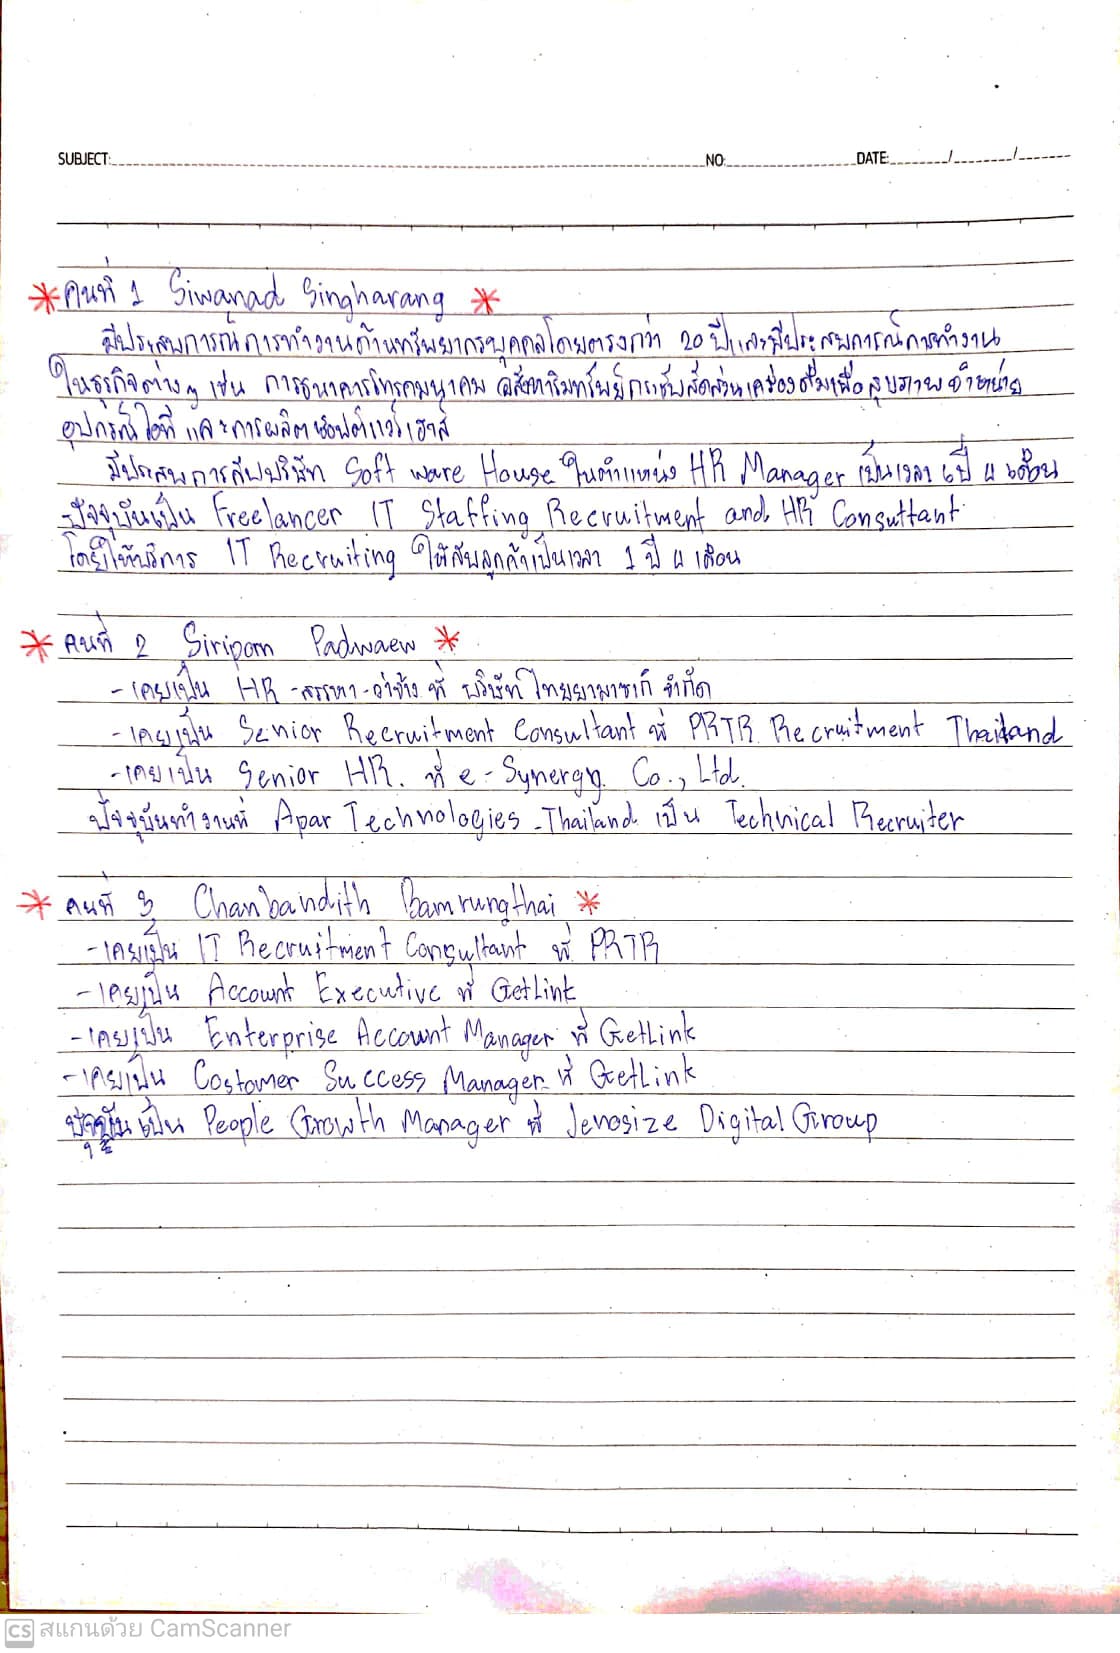 SUBJECT: NO. DATE: / /
* คนที่ 1 Siwanad Singharang *
มีประสบการณ์การทำงานด้านทรัพยากรบุคคลโดยตรงกว่า 20 ปีและมีประสบการณ์การทำงาน
ในธุรกิจต่างๆ เช่น การธนาคารโทรคมนาคม อสังหาริมทรัพย์ เครื่องดื่มเพื่อสุขภาพ จำหน่าย
อุปกรณ์ไอที และการผลิตซอฟต์แวร์เฮาส์
มีประสบการกับบริษัท Soft ware House ในตำแหน่ง HR Manager เป็นเวลา 6 ปี 4 เดือน
ปัจจุบันเป็น Freelancer IT Staffing Recruitment and HR Consuttant
โดยให้บริการ IT Recruiting ให้กับลูกค้าเป็นเวลา 1 ปี 4 เดือน
* คนที่ 2 Siriporn Padwaew *
-เคยเป็น HR -สรรหา-ว่าจ้าง ที่ บริษัท ไทยยามาซากิ จำกัด
-เคยเป็น Senior Recruitment Consultant ที่ PRTR Recruitment Thailand
-เคยเป็น Senior HR. ที่ e-Synergy. Co., Ltd.
ปัจจุบันทำงานที่ Apar Technologies -Thailand. เป็น Technical Recruiter
* คนที่ 3 Chanbandith Bamrungthai *
-เคยเป็น IT Recruitment Consultant ที่ PRTR
-เคยเป็น Account Executive ที่ GetLink
-เคยเป็น Enterprise Account Manager ที่ GetLink
-เคยเป็น Costomer Success Manager ที่ GetLink
ปัจจุบัน เป็น People Growth Manager ที่ Jenosize Digital Group
CS สแกนด้วย CamScanner